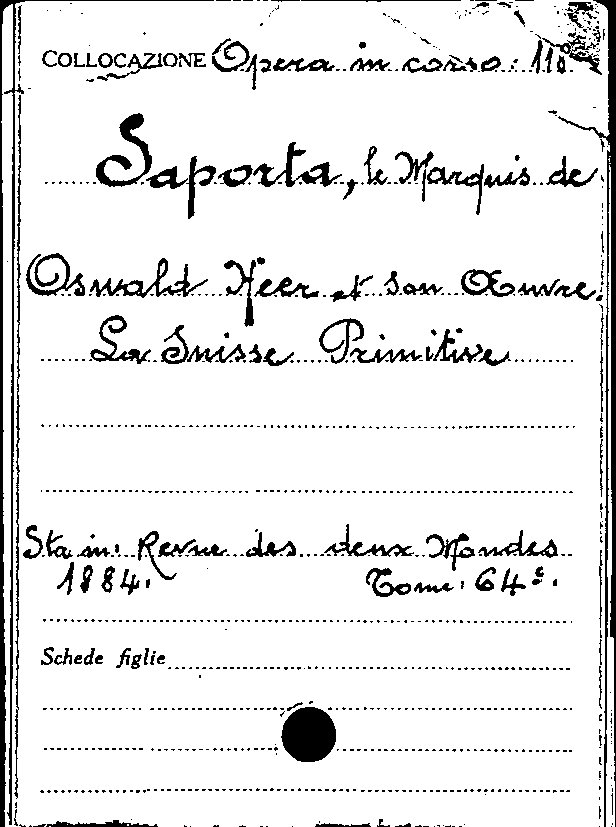 COLLOCAZIONE Opera in corso: 110
Saporta, le Marquis de
Oswald Heer et son Œuvre.
La Suisse Primitive
Sta in: Revue des deux Mondes
1884. Tome: 64e.
Schede figlie